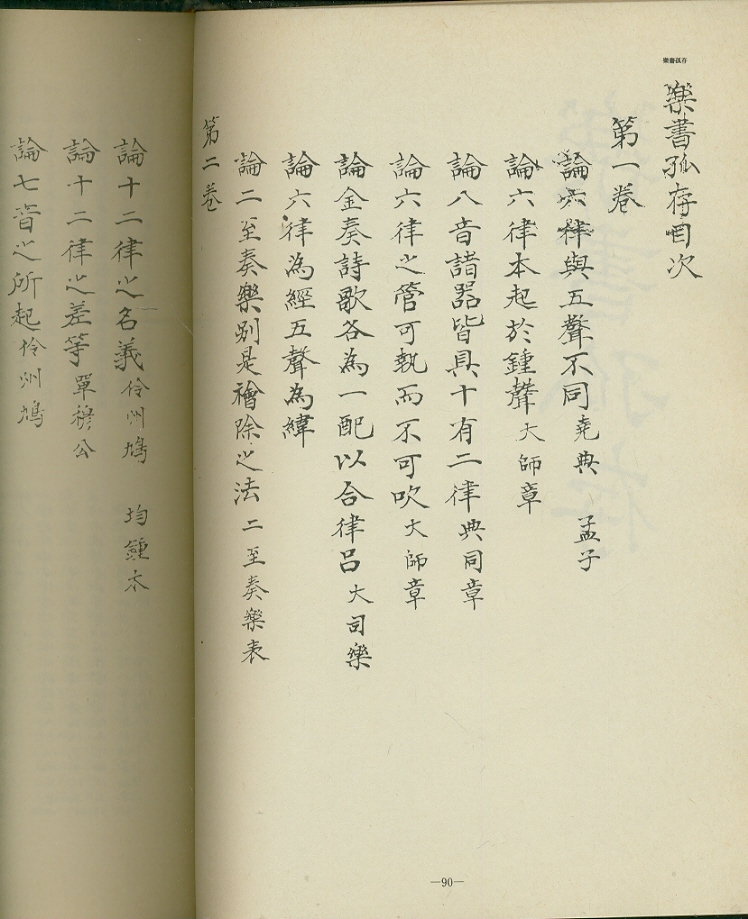 樂書孤存
樂書孤存目次
第一卷
論六律與五聲不同 堯典 孟子
論六律本起於鍾聲 大師章
論八音諸器皆具十有二律 典同章
論六律之管可執而不可吹 大師章
論金奏詩歌各為一配以合律呂 大司樂
論六律為經五聲為緯
論二至奏樂別是禬除之法 二至奏樂表
第二卷
論十二律之名義 伶州鳩 均鍾木
論十二律之差等 單穆公
論七音之所起 伶州鳩
—90—